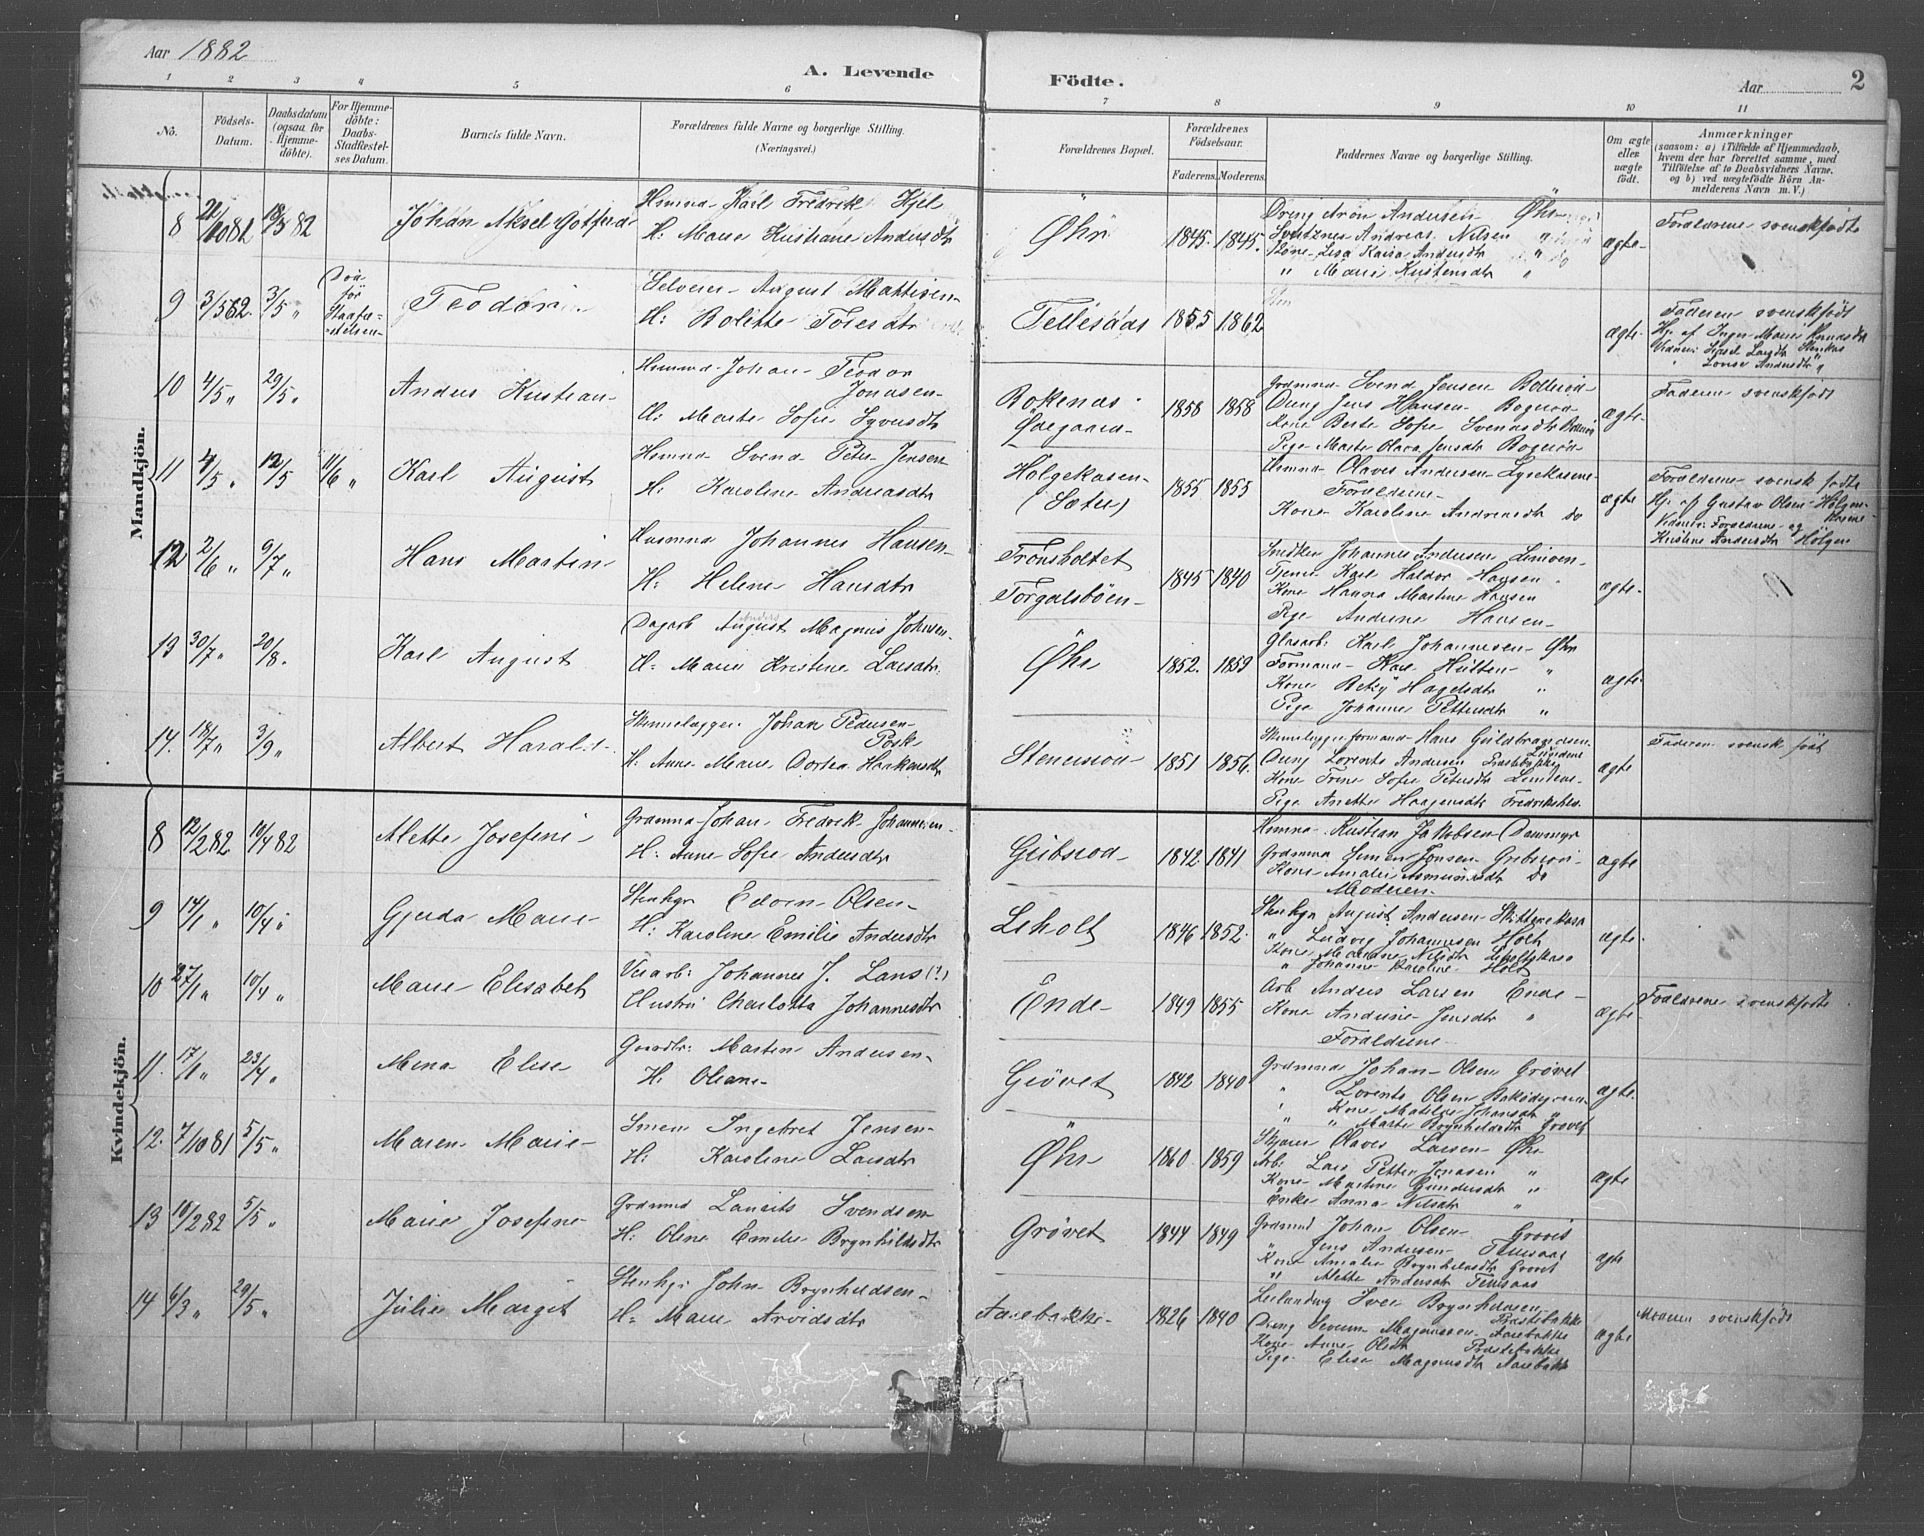 Aar 1882
A. Levende
Födte.
Aar
2
1 2 3 4 5 6 7 8 9 10 11
No.
Födsels-Datum.
Daabsdatum (ogsaa for Hjemmedöbte).
For Hjemmedöbte: Daabs-Stadfæstelses Datum.
Barnets fulde Navn.
Forældrenes fulde Navne og borgerlige Stilling. (Næringsvei.)
Forældrenes Bopæl.
Forældrenes Födselsaar.
Faderens. Moderens.
Faddernes Navne og borgerlige Stilling.
Om ægte eller uægte födt.
Anmærkninger
(saasom: a) i Tilfælde af Hjemmedaab, hvem der har forrettet samme, med Tilföielse af to Daabsvidners Navne, og b) ved uægtefödte Börn Anmelderens Navn m. V.)
Mandkjön.
8 21/10 81 18/3 82 Johan Aksel Gotfred
Husmnd Karl Fredrik Kjel
H: Marie Kristiane Andersdtr
Øhr 1845. 1845.
Dreng Aron Andersen Øhr
Andreas Nilsen "
Kone Lisa Kaisa Andersdtr "
" Marie Kristensdtr "
ægte
Forældrene svenskfødte
9 3/5 82. 3/5 "
Død før Stadfæstelsen
Teodor
Selveier August Mattisen
H: Bolette Toresdtr
Tellesaas 1855 1862
ægte.
Faderen svenskfødt
Hj. af Inger Marie
10 4/5 " 29/5 " Anders Kristian
Husmnd Johan Teodor Jonasen
H: Marte Sofie Syversdtr
Bokenæs Ødegaard 1858 1858
Grdmnd Svend Jensen Bollerød
Dreng Jens Hansen Bøgerød
Kone Berte Sofie Svensdtr
Pige Marte Olava Jensdtr Bøgerød
ægte
Faderen svenskfødt
11 4/5 " 12/5 11/6 " Karl August
Husmnd Svend Peter Jensen
H: Karoline Andreasdtr
Holgekasen (Sæter) 1855 1855
Husmnd Olaves Andersen
Forældrene
Kone Karoline Andreasdtr do
ægte
Forældrene svensk fødte
Hj. af Gustav Olsen
Vidner: Forældrene og
Kristine Andersdtr
12 2/6 " 9/7 " Hans Martin
Husmnd Johannes Hansen
H: Helene Hansdtr
Frønsholtet
Torgalsbøen 1845 1840
Johannes Andersen
Tjener Karl Haldor Hansen
Kone Hanna Martine Hansen
Pige Andrine Hansen
ægte
13 30/7 " 20/8. Karl August
Dagarb August Magnus Johnsen
H: Marie Kristine Larsdtr
Øhr 1852. 1859
Glasarb: Karl Johannesen Øhr
Formand Karl Hulten "
Kone Betzy Hagelsdtr "
Pige Johanne Pettersdtr "
ægte
14. 18/7 " 3/9 " Albert Harald
Skinnelægger Johan Pedersen
H: Anne Marie Dortea Haakensdtr
Stensrød 1851 1856
Skinnelæggerformand Hans Guldbrandsen
Dreng Lorents Andersen
Kone Trine Sofie Petersdtr Lundene
Pige Anette Haagensdtr Fredrikshal
ægte
Faderen svensk født
Kvindekjön.
8 12/2 82 10/4 82 Alette Josefine
Grdmnd Johan Fredrik Johannesen
H: Anne Sofie Andersdtr
Gribsrød 1842 1841
Husmnd Kristian Jakobsen Dammyr
Grdmnd Simen Jensen Gribsrød
Kone Amalie Asmundsdtr do
Moderen
ægte
9 14/1 " 10/4 " Gjerda Marie
Stenhgr Edvin Olsen
H: Karoline Emilie Andersdtr
Leholt 1846 1852.
Stenhgr August Andersen
" Ludvig Johannesen Holt
Kone Mariane Nilsdtr
" Johanne Karoline Holt
ægte
10 27/1 " 10/4 " Marie Elisabet
Veiarb: Johannes J. Lans (?)
Hustru Charlotta Johannesdtr
Ende 1849 1855
Arb Anders Larsen Ende
Kone Andrine Jensdtr "
Forældrene
ægte
Forældrene svenskfødte
11. 17/1 " 23/4 " Mina Elise
Martin Andersen
H: Oleane
Grøvet 1842 1840
Grdmnd Johan Olsen Grøvet
" Lorents Olsen
" Kone Matilde Johansdtr "
" " Marte Brynhildsdtr Grøvet
ægte.
12. 7/10 81 5/5 " Maren Marie
Ingebret Jensen
H: Karoline Larsdtr
Øhr 1860 1859
Olaves Larsen Øhr
Arb: Lars Petter Jonasen "
Kone Martine Gundersdtr "
Enke Anna Nilsdtr "
ægte
13 10/2 82 5/5 " Marie Josefine
Grdmnd Laurits Svendsen
H: Oline Emilie Brynhildsdtr
Grøvet 1844 1849
Grdmnd Johan Olsen Grøvet
" Jens Andersen Tellesaas
Kone Amalie Brynhildsdtr Grøvet
" Alette Andersdtr Tellesaas
ægte
14 6/3 " 29/5 " Julie Margit
Stenhgr John Brynhildsen
H: Marie Arvidsdtr
Aarebakke 1826 1840
Iver Brynhildsen
Dreng Severin Magnussen Aarebakke
Kone Anne Olsdtr
Pige Elise Magnusdtr Aarebakke
ægte
Moderen svenskfødt